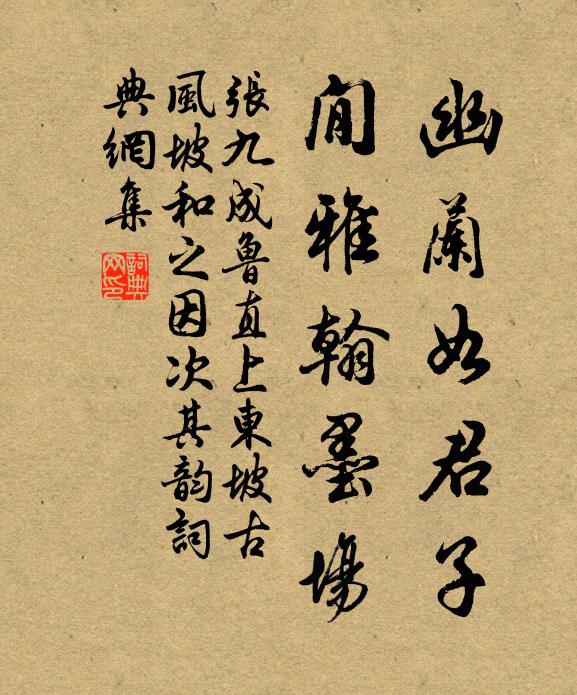 幽蘭如君子
閒雅翰墨場
張九成魯直上東坡古
風坡和之因次其韵詞
典網集
詞典
网印